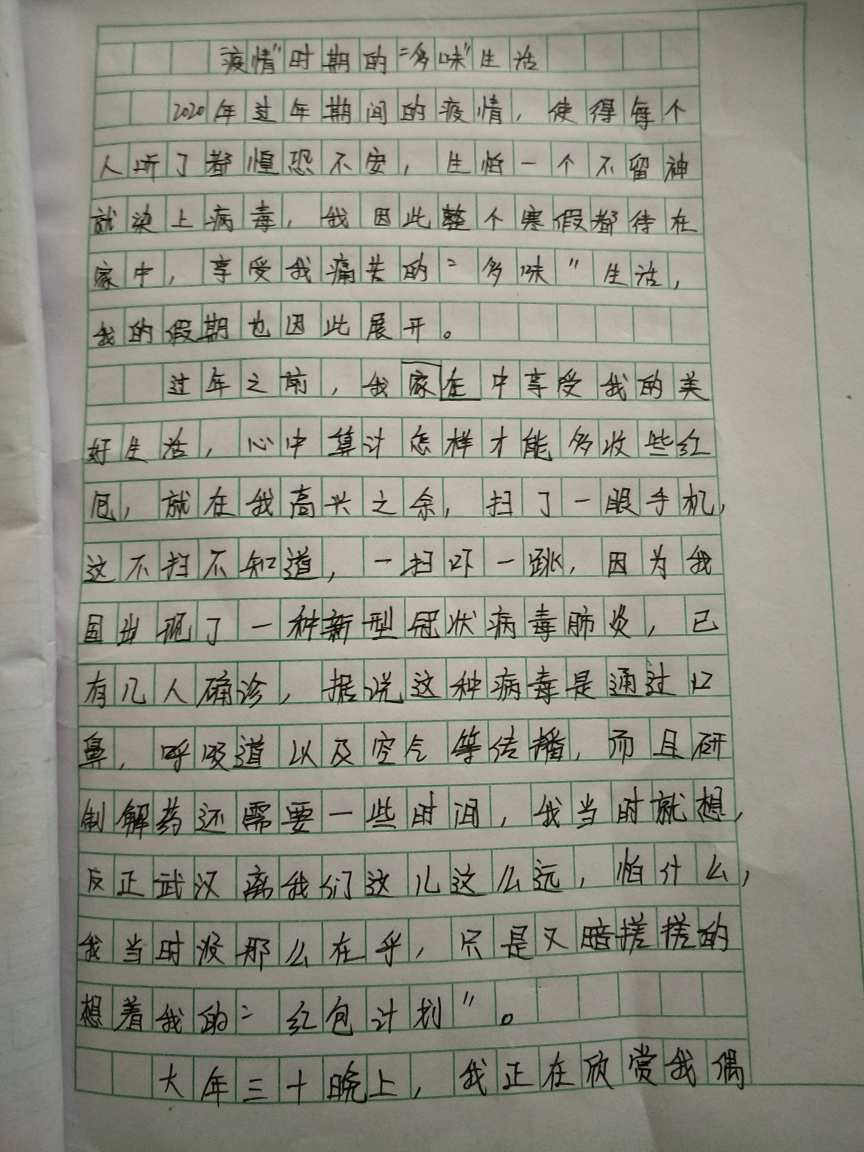 疫情"时期的"多味"生活
2020年过年期间的疫情,使得每个
人听了都惶恐不安,生怕一个不留神
就染上病毒,我因此整个寒假都待在
家中,享受我痛苦的"多味"生活,
我的假期也因此展开。
过年之前,我家在中享受我的美
好生活,心中算计怎样才能多收些红
包,就在我高兴之余,扫了一眼手机,
这不扫不知道,一扫吓一跳,因为我
国出现了一种新型冠状病毒肺炎,已
有几人确诊,据说这种病毒是通过口
鼻,呼吸道以及空气等传播,而且研
制解药还需要一些时间,我当时就想,
反正武汉离我们这儿这么远,怕什么,
我当时没那么在乎,只是又暗搓搓的
想着我的"红包计划"。
大年三十晚上,我正在欣赏我偶